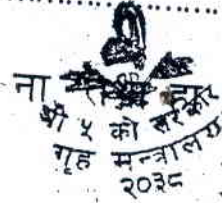 ना
श्री ५ को सरकार
गृह मन्त्रालय
२०३८